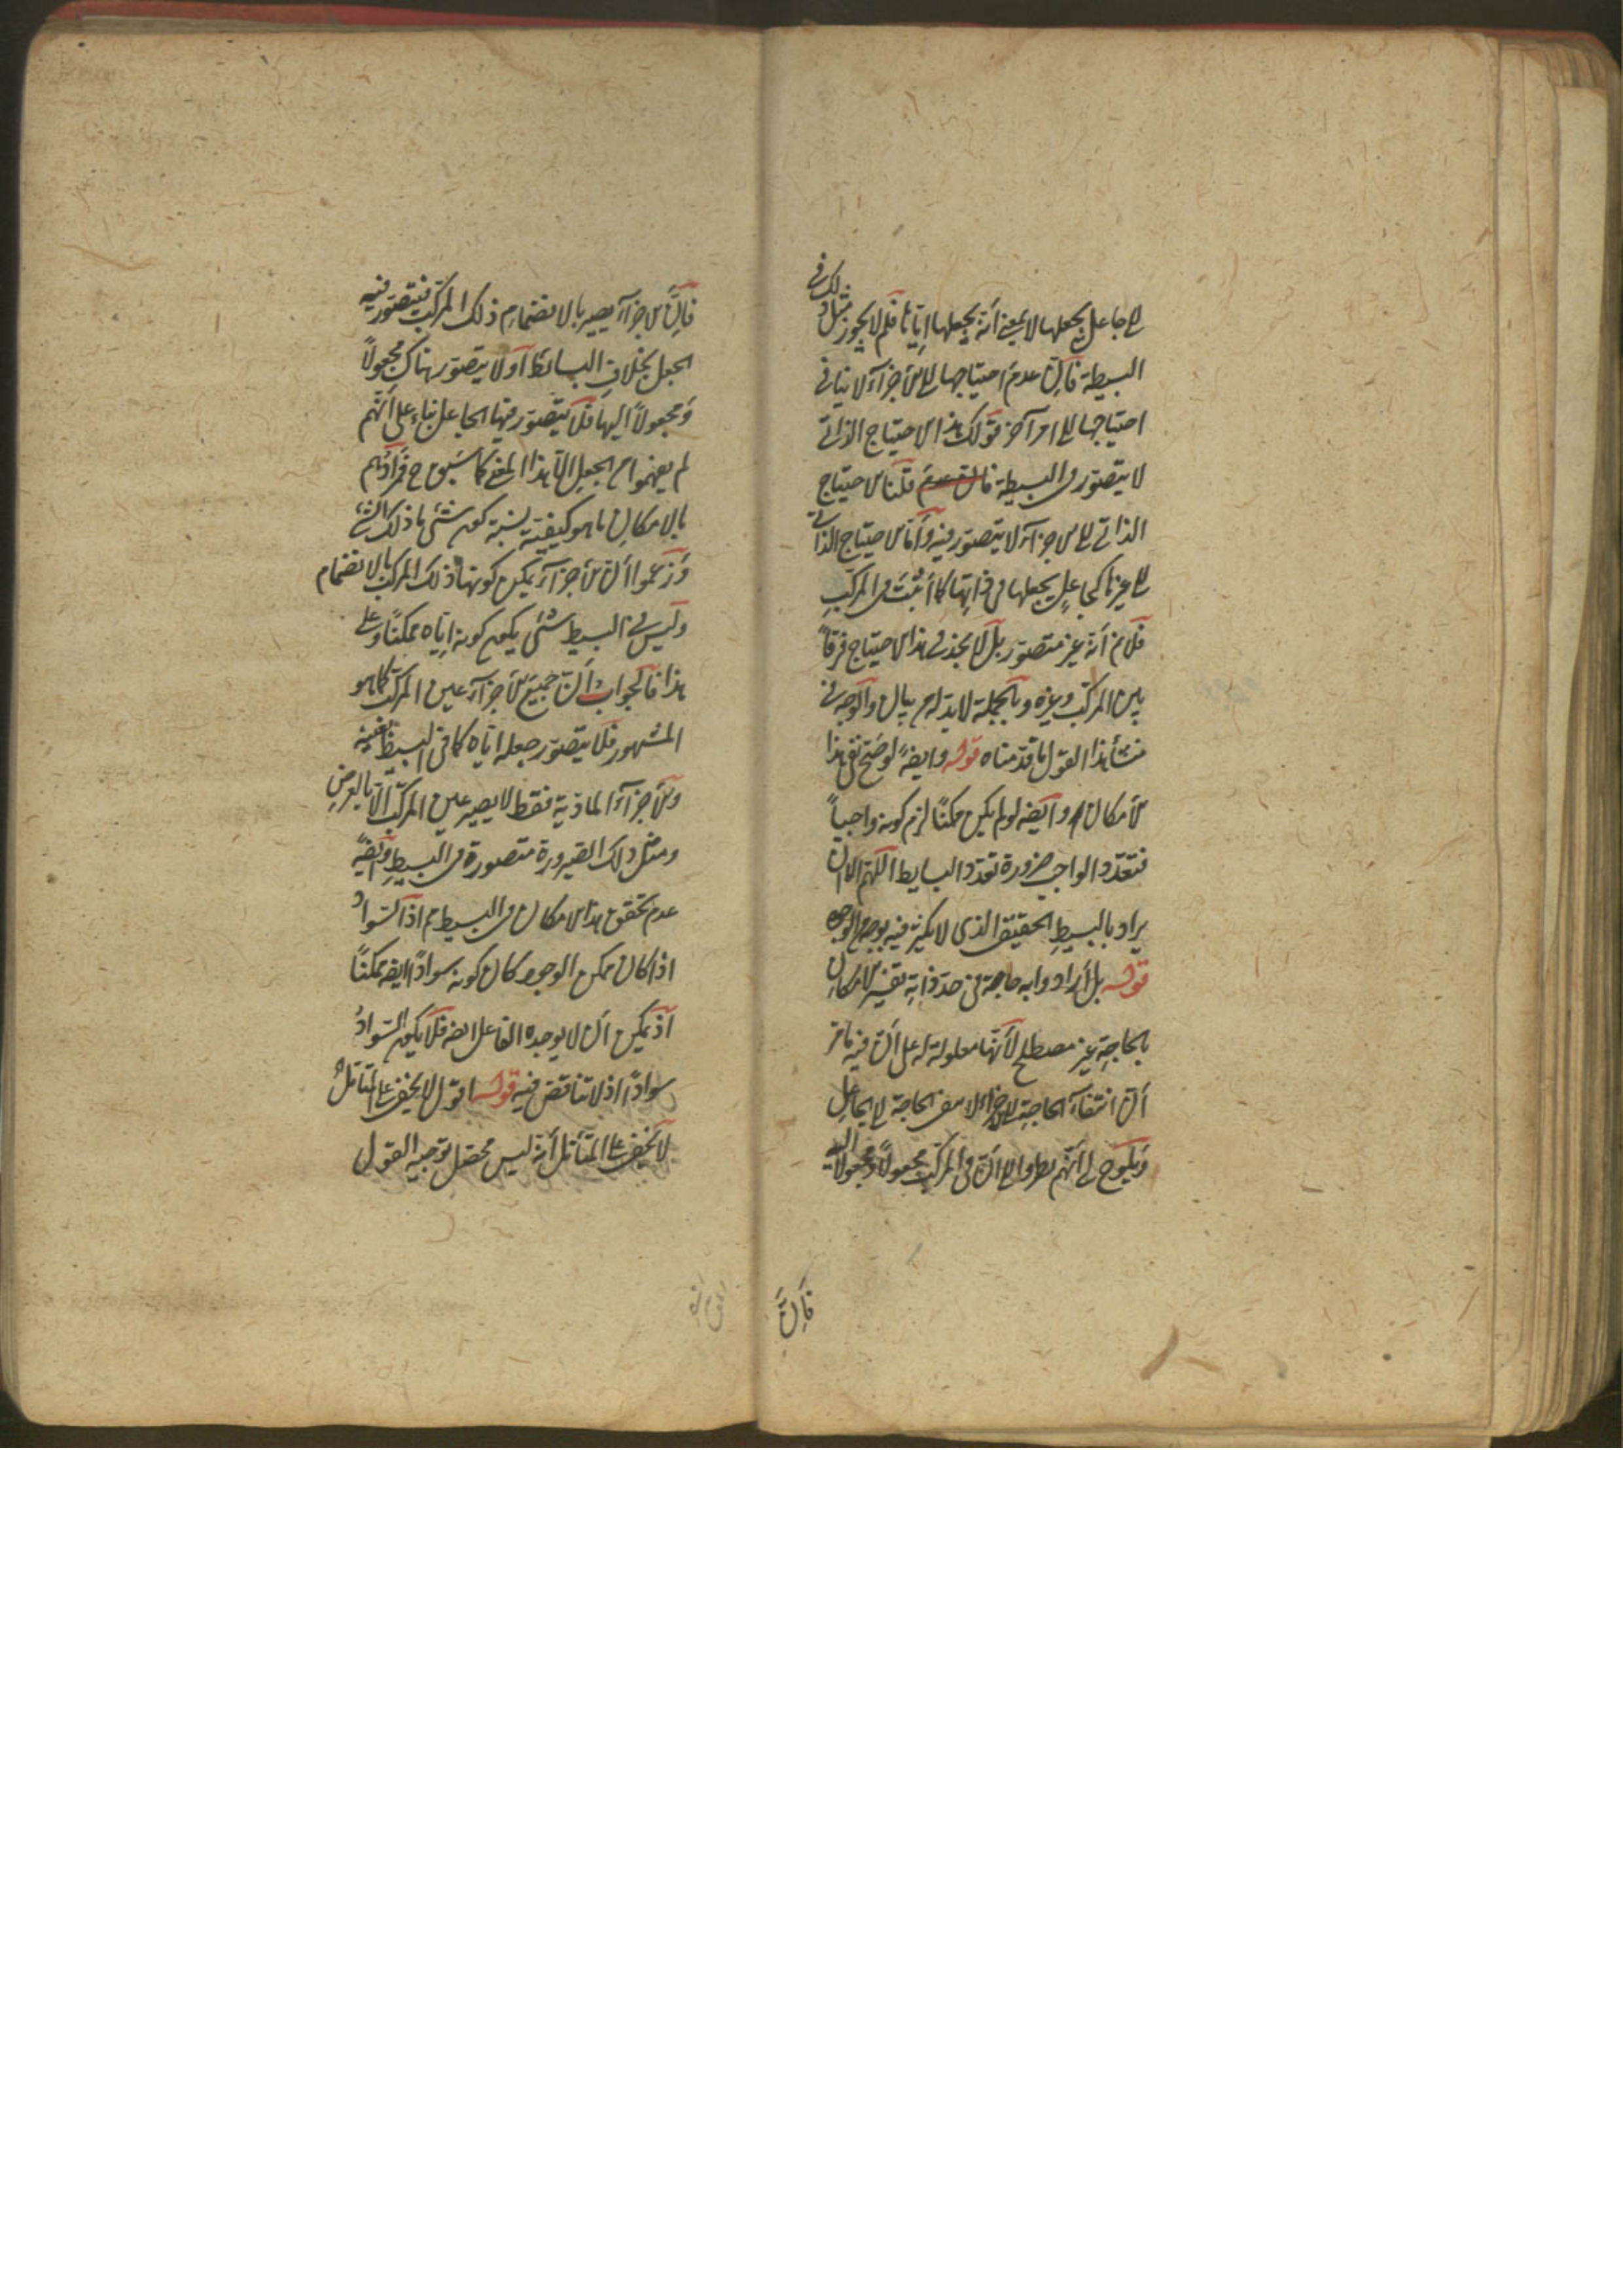 الى جاعل يجعلها لا بمعنى أنه يجعلها إياها فلم لا يجوز مثل ذلك في
البسيطة فإن عدم احتياجها الى الأجزاء لا ينافي
احتياجها الى امر آخر قولك هذا الاحتياج الذاتي
لا يتصور في البسيطة فان عدم قلنا الاحتياج
الذاتي الى الاجزاء لا يتصور فيه وأما الاحتياج الذاتي
الى غيرها كجاعل يجعلها في ذاتها كما أثبت في المركب
فلا نم أنه غير متصور بل لا يجد في هذا الاحتياج فرقاً
بين المركب وغيره وبالجملة لا بد له من بيان والوجه في
منشأ هذا القول ما قدمناه قوله وايضاً لو صح نفي هذا
الامكان وايضه لو لم يكن ممكنًا لزم كونه واجباً
فتعدد الواجب ضرورة تعدد البسايط اللهم الا ان
يراد بالبسيط الحقيقي الذي لا تكثر فيه بوجه من الوجوه
قوله بل أرادوا به حاجة في حد ذاته تفسير الامكان
بالحاجة غير مصطلح لأنها معلولة له على أن فيه ما مر
أن انتفاء الحاجة الى الاجزاء لا ينفي الحاجة الى الجاعل
ويلوح لي أنهم نظروا الى أن في المركب مجعولاً ومجعولاً اليه
فإنّ
فإنّ الاجزاء يصير بالانضمام ذلك المركب فيتصور فيه
الجعل بخلاف البسائط اذ لا يتصور هناك مجعولاً
ومجعولاً اليها فلا يتصور فيها الجاعل بناء على أنهم
لم يفهموا من الجعل الا هذا المعنى كما سبق فمرادهم
بالامكان ما هو كيفية نسبة كون شئ ما ذلك الشئ
وزعموا أن الأجزاء يمكن كونها ذلك المركب بالانضمام
وليس في البسيط شئ يكون كونه إياه ممكنًا وعلى
هذا فالجواب أن جميع الأجزاء عين المركب كما هو
المشهور فلا يتصور جعله اياه كما في البسيط بعينه
والأجزاء المادية فقط لا يصير عين المركب الا بالعرض
ومثل ذلك الصيرورة متصورة في البسيط وايضاً
عدم تحقق هذا الامكان في البسيط مم اذ السواد
اذا كان ممكن الوجود كان كونه سوادًا ايضه ممكنًا
اذ يمكن أن لا يوجده الفاعل ايضه فلا يكون السواد
سوادًا اذ لا تناقض فيه قوله اقول لا يخفى على المتأمل
لا يخفى على المتأمل أنه ليس محصل توجيه القول